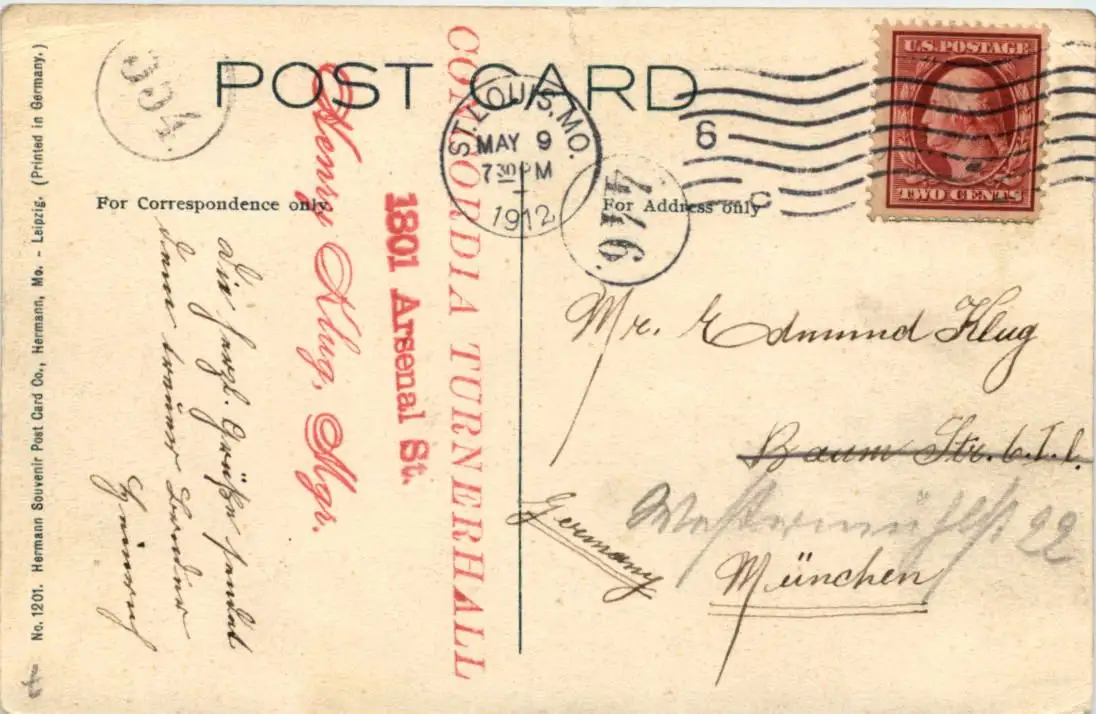 POST CARD
No. 1201. Hermann Souvenir Post Card Co., Hermann, Mo. - Leipzig. (Printed in Germany.)
354.
For Correspondence only.
Die herzl. Grüße sendet
dein treuer Bruder
Heinrich
Henry Klug, Mgr.
1801 Arsenal St.
CONCORDIA TURNERHALL
ST. LOUIS, MO.
MAY 9
7 30 PM
1912
6
C
U.S. POSTAGE
TWO CENTS
For Address only
Mr. Edmund Klug
Baum Str. 6.I.l.
Westermühlst. 22
München
Germany